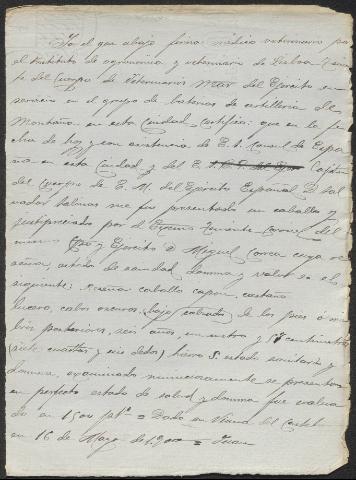 Yo el que abajo firmo médico veterinario por
el instituto de agronomia y veterinaria de Lisboa
del Cuerpo de Veterinarios Mar del Ejército en
servicio en el grupo de baterias de artilleria de
Montaña en esta Ciudad certifico: que en la fe
cha de hoy y con asistencia de E. S. Consul de Espa
ña en esta Ciudad y del Capitan
del Cuerpo de E. M. del Ejército Español D. Sal
vador Salinas me fue presentado un caballo y
justipreciado por el Coronel del
mismo y Ejército D. Miguel Correa cuya re
seña, estado de sanidad, doma y valor es el
siguiente: Reseña caballo capon, castaño
lucero, cabos oscuros bajo calzado de los pies ó miem
bros posteriores, seis años, un metro y centimetros
(siete cuartas y seis dedos) hierro S. estado sanitario y
doma, examinado minuciosamente se presenta
en perfecto estado de salud y doma fue valua
do en 1500 = Dado en Viana del Castelo
en 16 de Mayo de 1.900 = Juan